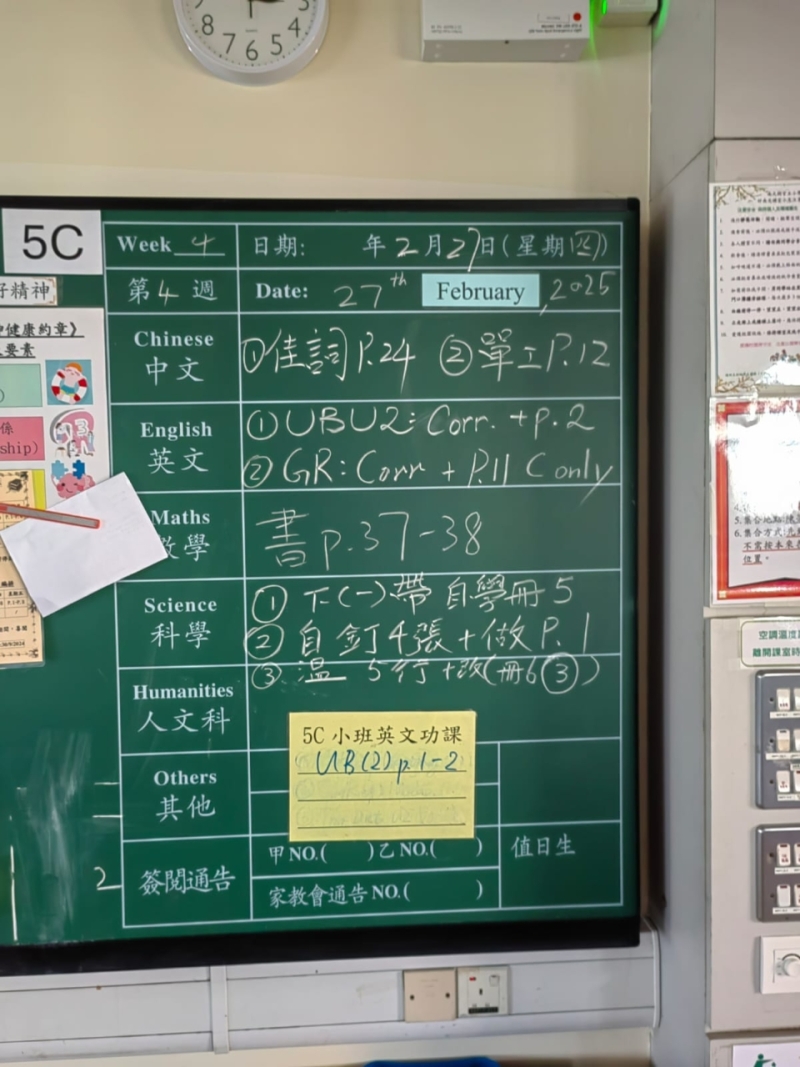 8 7 6 5 4
5C
Week 4 日期: 年2月27日(星期四)
第4週 Date: 27th February, 2025
Chinese
中文
①佳詞P.24 ②單工P.12
English
英文
①UBU2: Corr. + p.2
②GR: Corr + P.11 C only
Maths
數學
書p.37-38
Science
科學
① 下(一)帶自學冊5
② 自釘4張+做P.1
③ 温 5行+改(冊6③)
Humanities
人文科
5C 小班英文功課
UB(2) p.1-2
Others
其他
簽閱通告
甲NO.( )乙NO.( )
家教會通告NO.( )
值日生
2
好精神
健康約章》
要素
係
ship)
5. 集合地點
6. 集合方式
不需按本來
位置。
空調溫度
離開課室時